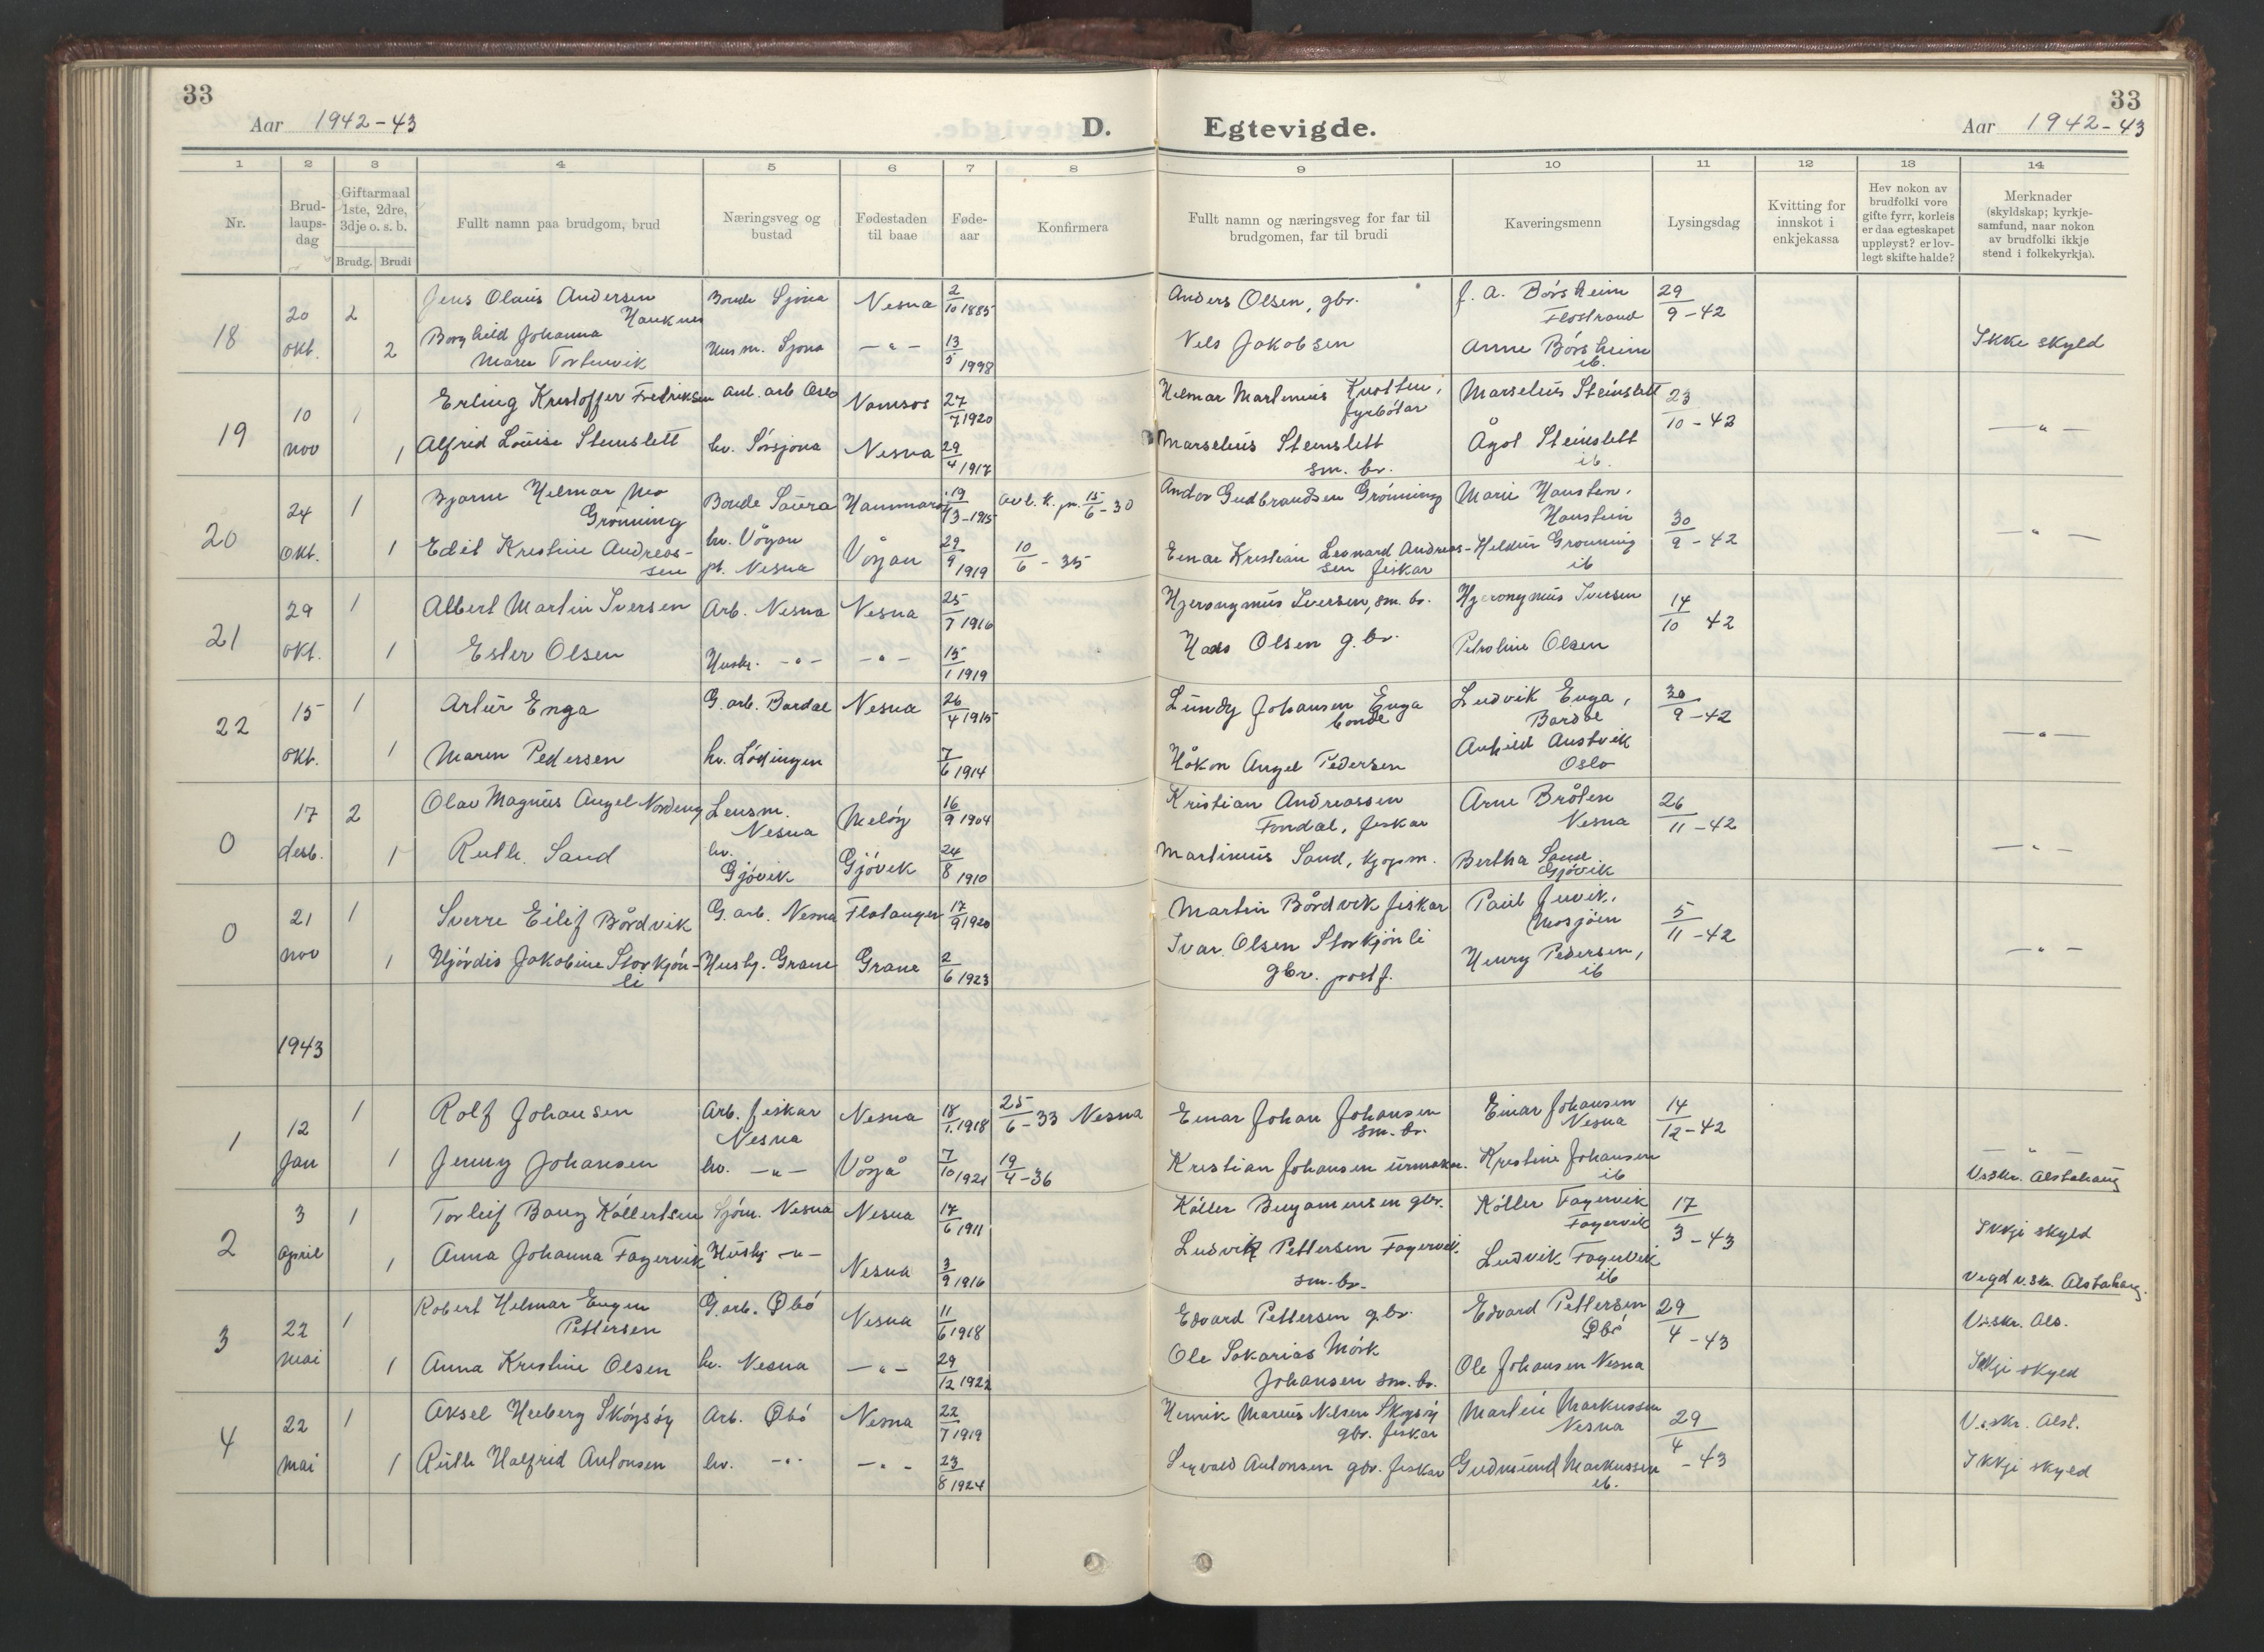 33
Aar 1942-43
D.
Egtevigde.
33
Aar 1942-43
1 2 3 4 5 6 7 8 9 10 11 12 13 14
Nr.
Brud-
laups-
dag
Giftarmaal
1ste, 2dre,
3dje o. s. b.
Brudg. Brudi
Fullt namn paa brudgom, brud
Næringsveg og
bustad
Fødestaden
til baae
Føde-
aar
Konfirmera
Fullt namn og næringsveg for far til
brudgomen, far til brudi
Kaveringsmenn
Lysingsdag
Kvitting for
innskot i
enkjekassa
Hev nokon av
brudfolki vore
gifte fyrr, korleis
er daa egteskapet
uppløyst? er lov-
legt skifte halde?
Merknader
(skyldskap; kyrkje-
samfund, naar nokon
av brudfolki ikkje
stend i folkekyrkja).
18 20 okt. 2 Jens Olaus Andersen Hauknes Bonde Sjona Nesna 2/10 1885 Anders Olsen, gbr. J. A. Børsheim Flostrand 29/9-42
2 Borghild Johanna Maren Tortenvik Husm. Sjona -"- 13/5 1998 Nels Jakobsen Anne Børsheim ib. Ikke skyld
19 10 nov 1 Erling Kristoffer Fredriksen anl. arb Oslo Namsos 27/7 1920 Helmar Martenius Knotten, fyrbøtar Marselius Steinslett 23/10-42
1 Alfrid Louise Steinslett hv. Sørsjona Nesna 29/4 1917 Marselius Steinslett sm. br. Ågot Steinslett ib. -"-
20 24 okt. 1 Bjarne Helmar Meo Grønning Bonde Saura Hammarøy 19/3-1915 avl. k. pr. 15/6-30 Andor Gudbrandsen Grønning Marie Haustein, Haustein 30/9-42
1 Edit Kristine Andreassen hv. Vågan pt. Nesna Vågan 29/9 1919 10/6-35 Einar Kristian Leonard Andreas-sen fiskar Heldur Grønning ib -"-
21 29 okt. 1 Albert Martin Iversen Arb. Nesna Nesna 25/7 1916 Hjeronymus Iversen, sm. br. Hjeronymus Iversen 14/10 42
1 Ester Olsen Husbr. -"- -"- 15/1 1919 Hans Olsen g. br. Petroline Olsen
22 15 okt. 1 Artur Enga G. arb. Bardal Nesna 26/4 1915 Lundy Johansen Enga bonde Ludvik Enga, Bardal 30/9-42
1 Maren Pedersen hv. Lødingen 7/6 1914 Håkon Angel Pedersen Anhild Austvik Oslo -"-
0 17 desb. 2 Olav Magnus Angel Nordeng Lensm. Nesna Meløy 16/9 1904 Kristian Andreassen Fondal, fiskar Arne Bråten Nesna 26/11-42
1 Ruth Sand hv. Gjøvik Gjøvik 24/8 1910 Martinius Sand, kjøpm. Bertha Sand Gjøvik -"-
0 21 nov 1 Sverre Eilif Bårdvik G. arb. Nesna Flatanger 17/9 1920 Martin Bårdvik fiskar Paul Juvik, Mosjøen 5/11-42
1 Hjørdis Jakobine Storkjønli Hushj. Grane Grane 2/6 1923 Ivar Olsen Storkjønli gbr. postf. Henry Pedersen, ib -"-
1943
1 12 Jan 1 Rolf Johansen Arb. fiskar Nesna Nesna 18/1 1918 25/6-33 Nesna Einar Johan Johansen sm. br. Einar Johansen Nesna 14/12-42
1 Jenny Johansen hv. -"- Vågå 7/10 1921 19/4-36 Kristian Johansen urmakar. Kristine Johansen ib " V.skr. Alstahaug
2 3 april 1 Torleif Bang Køllertsen Sjøm. Nesna Nesna 17/6 1911 Køller Benjaminsen gbr. Køller Fagervik Fagervik 17/3-43 Ikkji skyld
1 Anna Johanna Fagervik Hushj -"- Nesna 3/9 1916 Ludvik Pettersen Fagervik. sm. br. Ludvik Fagervik ib Vegd v. skr. Alstahaug.
3 22 mai 1 Robert Helmar Eugen Pettersen G. arb. Øbø Nesna 11/6 1918 Edvard Pettersen g.br. Edvard Pettersen Øbø 29/4-43 V.skr. Als.
1 Anna Kristine Olsen hv. Nesna -"- 29/12 1922 Ole Sakarias Mørk Johansen sm. br. Ole Johansen Nesna Ikkji skyld
4 22 mai 1 Aksel Heeberg Skogsøy Arb. Øbø Nesna 22/7 1919 Henrik Marius Nilsen Skogsøy gbr. fiskar Martin Markussen Nesna 29/4-43 V.skr. Alst.
1 Ruth Halfrid Antonsen hv. -"- -"- 23/8 1924 Sigvald Antonsen gbr. fiskar Gudmund Markussen ib. Ikkji skyld